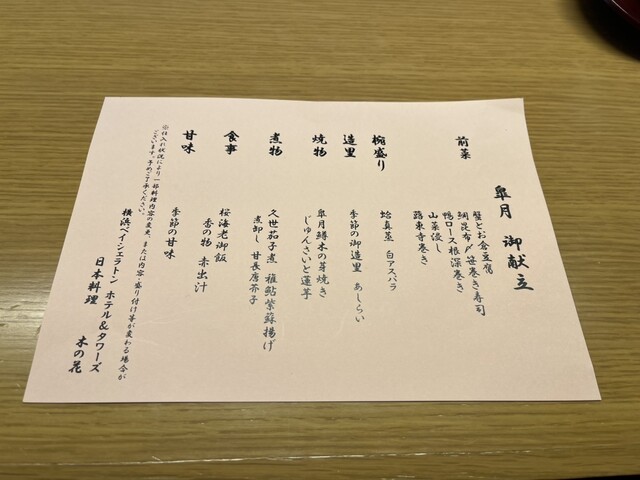 皐月 御献立
前菜
蟹とお倉豆腐
鯛昆布〆笹巻き寿司
鴨ロース根深巻き
山菜浸し
蕗東寺巻き
椀盛り
蛤真薯 白アスパラ
造里
季節の御造里 あしらい
焼物
皐月鱒木の芽焼き
じゅんさいと蓮芋
煮物
久世茄子煮 稚鮎紫蘇揚げ
煮卸し 甘長唐芥子
食事
桜海老御飯
香の物 赤出汁
甘味
季節の甘味
※仕入れ状況により一部料理内容の変更、または内容、盛り付け等が変わる場合が
ございます。予めご了承ください。
横浜ベイシェラトン ホテル&タワーズ
日本料理 木の花